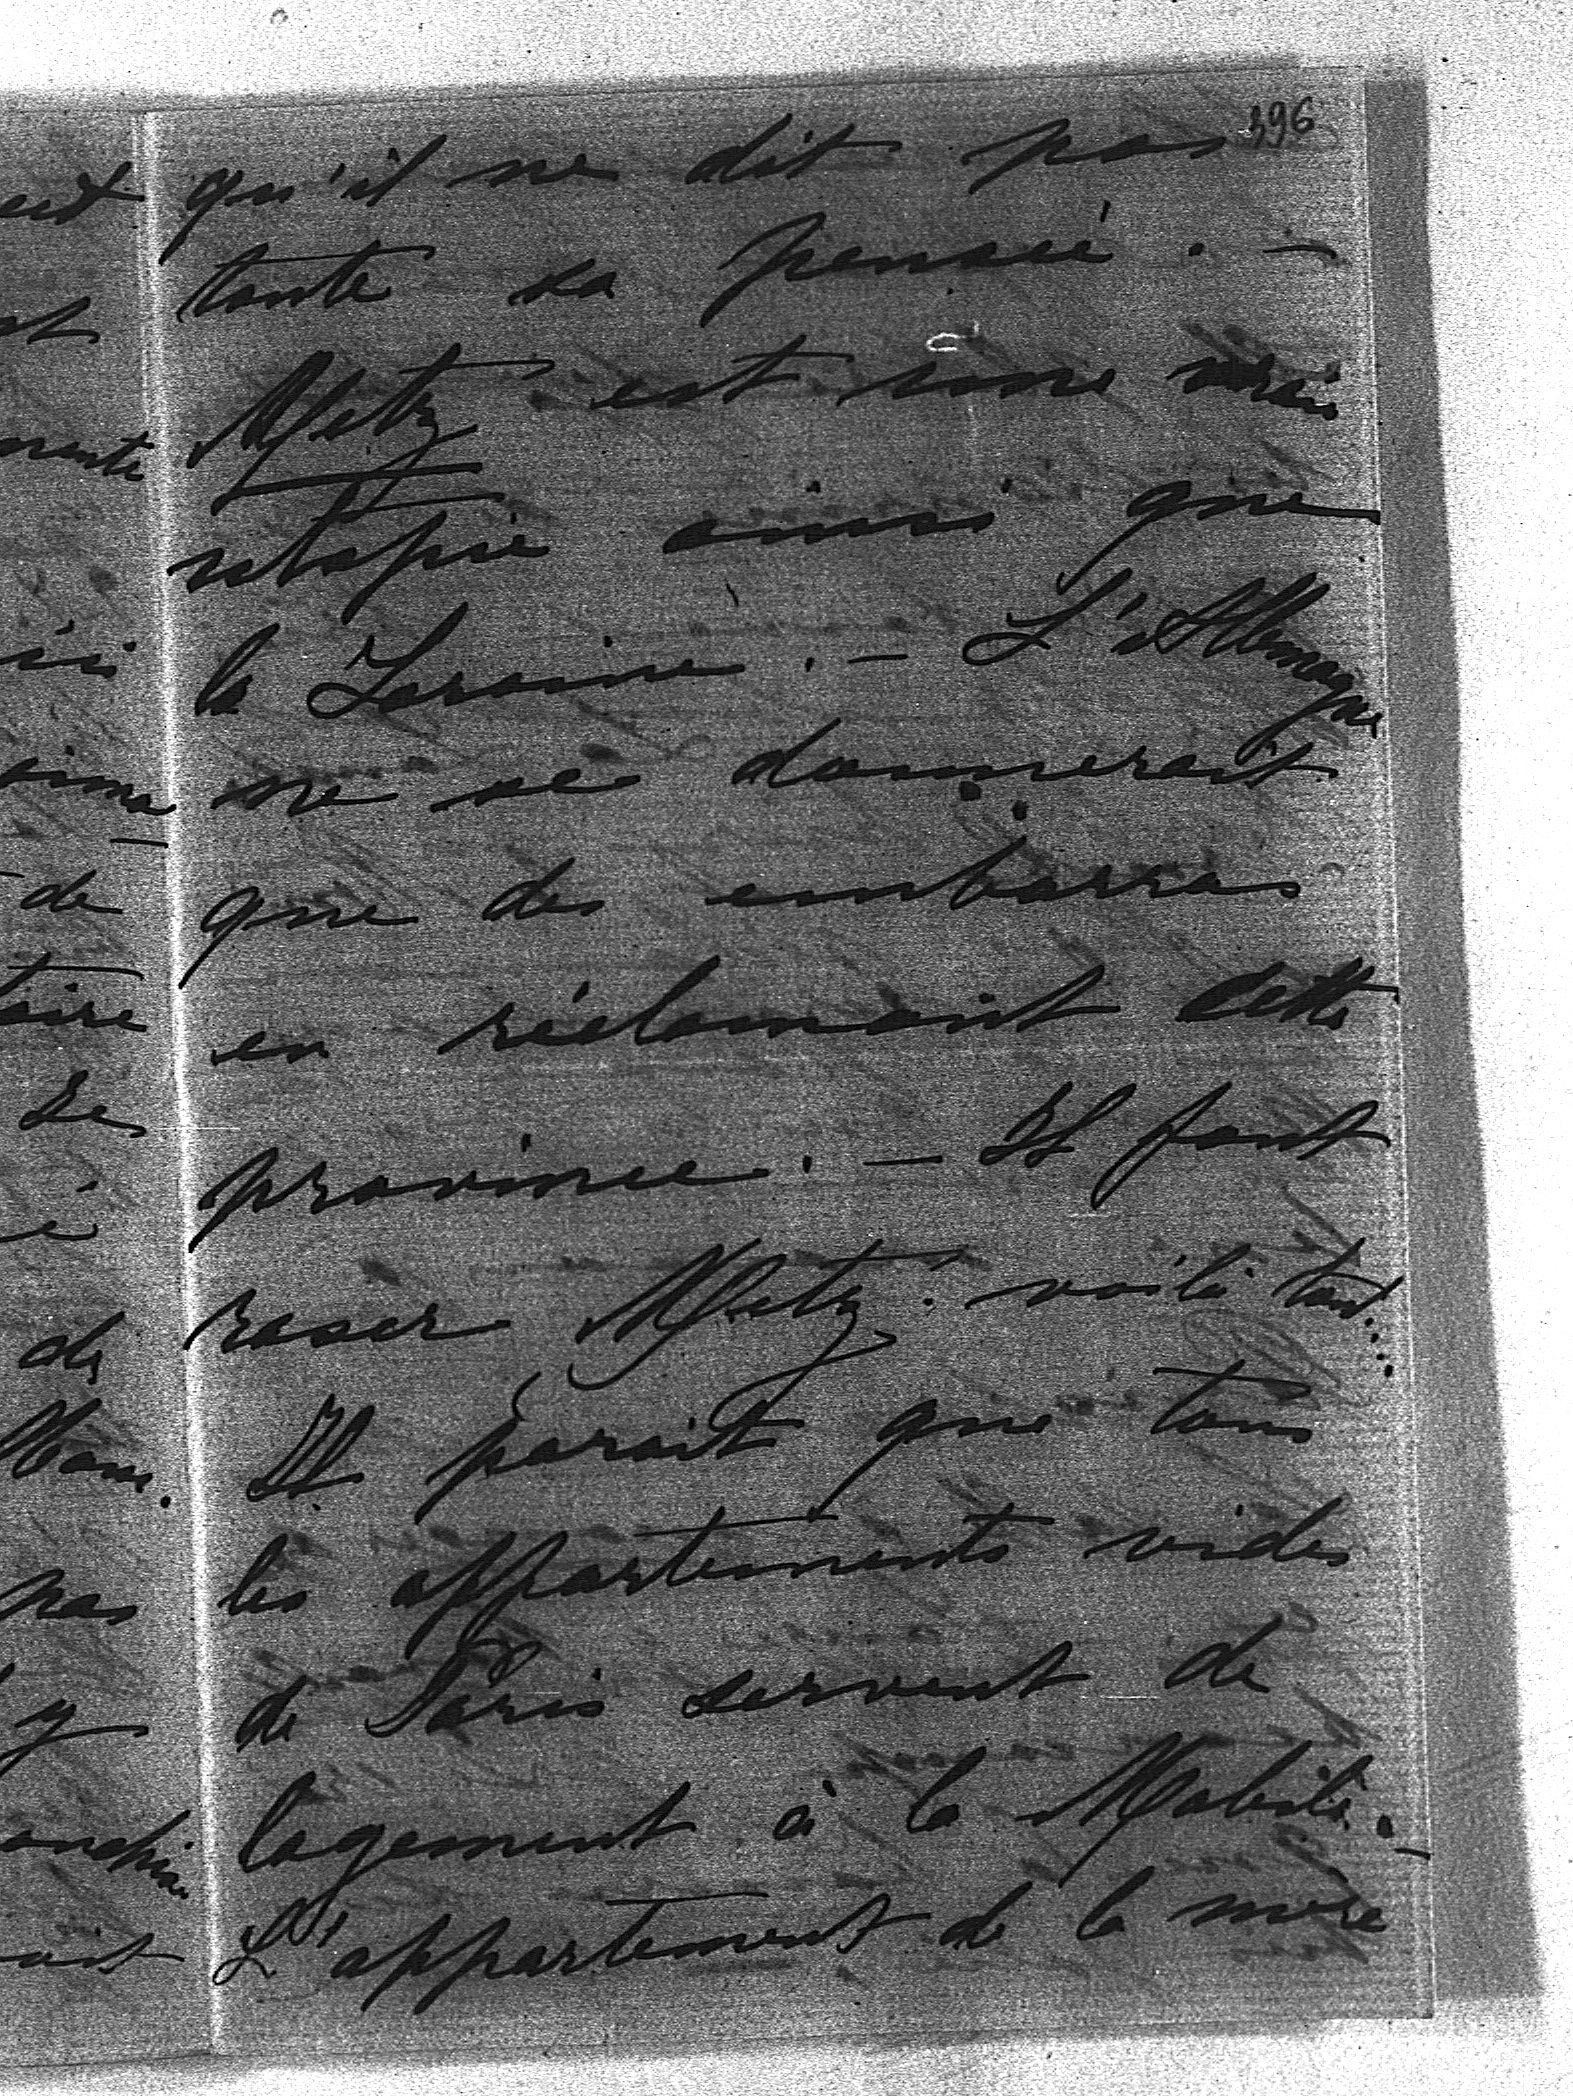 396
qu'il ne dit pas
toute sa pensée. —
Metz est une vraie
utopie ainsi que
la Loraine. — L'Allemagne
ne se donnerait
que des embarras
en réclamant cette
province. — Il faut
raser Metz: voilà tout....
Il parait que tous
les appartements vides
de Paris servent de
logement à la Mobile. —
L'appartement de la mère